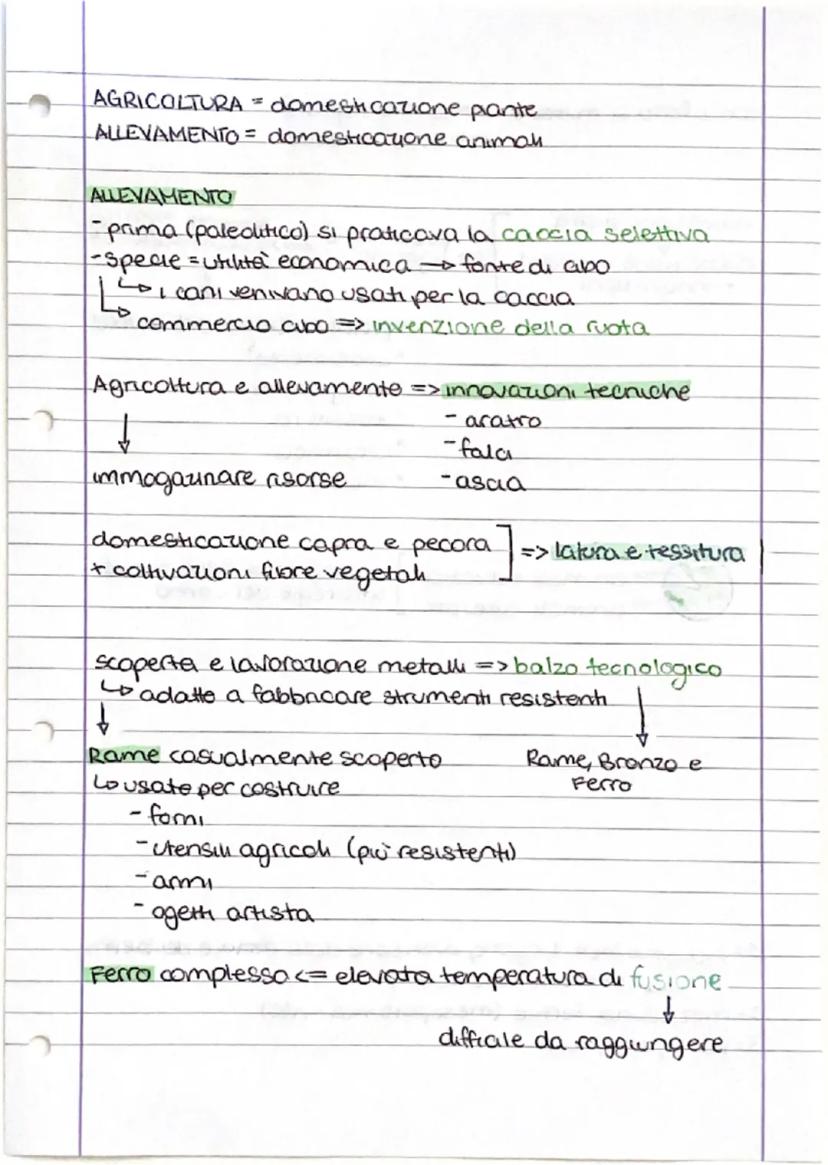 AGRICOLTURA = domesticazione piante
ALLEVAMENTO = domesticazione animali
ALLEVAMENTO
- prima (paleolitico) si praticava la caccia selettiva
- specie = utilità economica → fonte di cibo
↳ i cani venivano usati per la caccia
↳ commercio cibo => invenzione della ruota
Agricoltura e allevamento => innovazioni tecniche
↓ - aratro
- falci
immagazzinare risorse - ascia
domesticazione capra e pecora
+ coltivazioni fibre vegetali ] => filatura e tessitura
scoperta e lavorazione metalli => balzo tecnologico
↳ adatto a fabbricare strumenti resistenti
↓ ↓
Rame casualmente scoperto Rame, Bronzo e
↳ usato per costruire Ferro
- forni
- utensili agricoli (più resistenti)
- armi
- ogetti artista
Ferro complesso <= elevata temperatura di fusione
↓
difficile da raggiungere